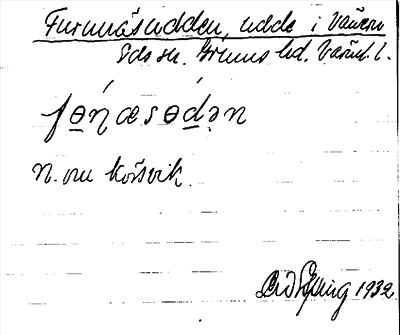 Furunäsudden, udde i Vänern
Eds sn. Grums hd. Värml. l.
fɵŋæsɵdən
N. om Korsvik.
1932